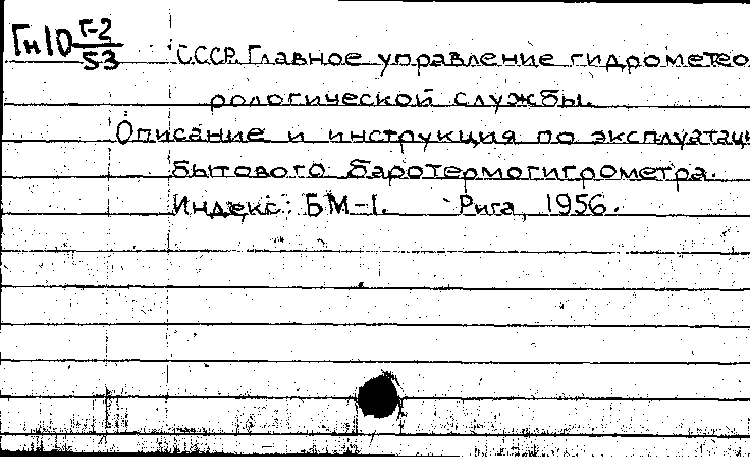 Гн10 Г-2/53
СССР. Главное управление гидрометео
рологической службы.
Описание и инструкция по эксплуатаци
бытового баротермогигрометра.
Индекс: БМ-1. Рига, 1956.